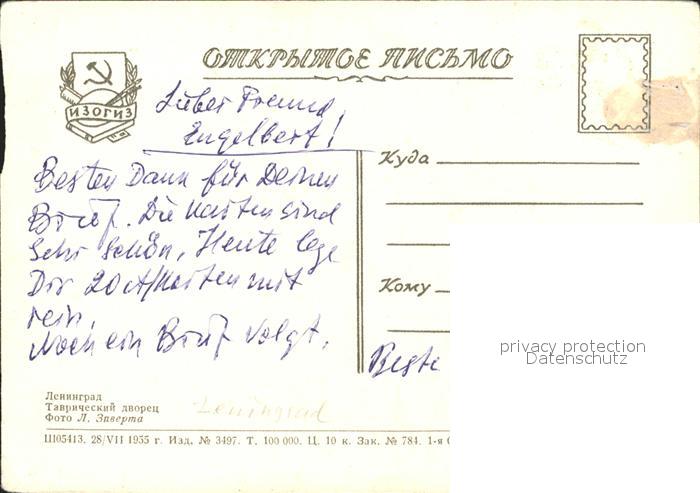 ОТКРЫТОЕ ПИСЬМО
ИЗОГИЗ
Lieber Freund
Engelbert!
Besten Dank für Deinen
Brief. Die Karten sind
sehr schön. Heute lege
Dir 20 Karten mit
rein.
Noch ein Brief volgt.
Куда
Кому
Beste
privacy protection
Datenschutz
Ленинград
Таврический дворец
Фото Л. Зиверта
Leningrad
Ш05413. 28/VII 1955 г. Изд. № 3497. Т. 100 000. Ц. 10 к. Зак. № 784. 1-я